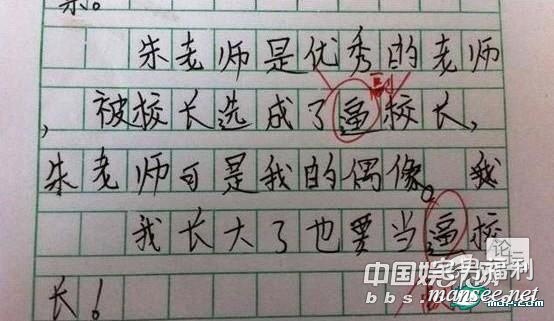 朱老师是优秀的老师
副
,被校长选成了逼校长,
朱老师可是我的偶像。我
我长大了也要当逼校
长!
中国娱
福利
论
bbs.
mansee.net